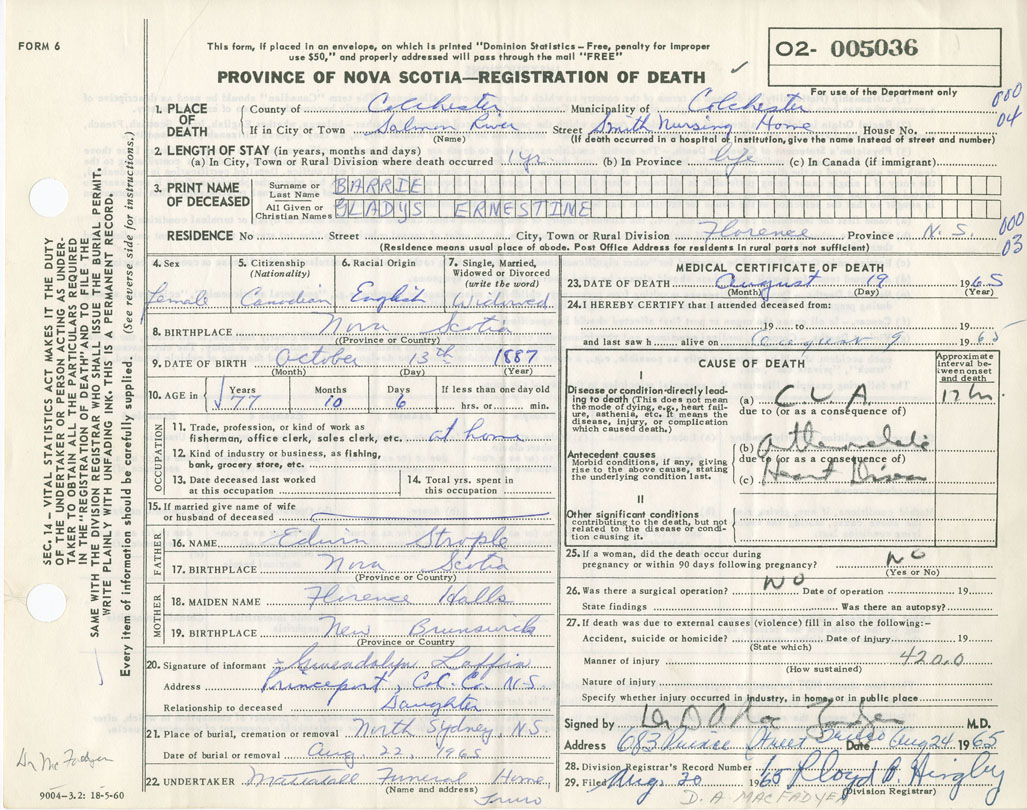 FORM 6
This form, if placed in an envelope, on which is printed "Dominion Statistics – Free, penalty for improper
use $50," and properly addressed will pass through the mail "FREE"
PROVINCE OF NOVA SCOTIA—REGISTRATION OF DEATH
O2- 005036
For use of the Department only
000
04
1. PLACE OF DEATH
County of Colchester Municipality of Colchester
If in City or Town Salmon River Street Smith Nursing Home House No.
(Name) (If death occurred in a hospital or institution, give name instead of street and number)
2. LENGTH OF STAY (in years, months and days)
(a) In City, Town or Rural Division where death occurred 1 yr. (b) In Province life (c) In Canada (if immigrant)
3. PRINT NAME OF DECEASED
Surname or Last Name BARRIE
All Given or Christian Names GLADYS ERNESTINE
RESIDENCE No Street City, Town or Rural Division Florence Province N.S.
(Residence means usual place of abode. Post Office Address for residents in rural parts not sufficient)
000
03
4. Sex 5. Citizenship (Nationality) 6. Racial Origin 7. Single, Married, Widowed or Divorced (write the word)
Female Canadian English Widowed
8. BIRTHPLACE Nova Scotia
(Province or Country)
9. DATE OF BIRTH October 13th 1887
(Month) (Day) (Year)
10. AGE in Years 77 Months 10 Days 6 If less than one day old hrs. or min.
OCCUPATION
11. Trade, profession, or kind of work as
fisherman, office clerk, sales clerk, etc. at home
12. Kind of industry or business, as fishing,
bank, grocery store, etc.
13. Date deceased last worked at this occupation
14. Total yrs. spent in this occupation
15. If married give name of wife
or husband of deceased
FATHER
16. NAME Edwin Strople
17. BIRTHPLACE Nova Scotia
(Province or Country)
MOTHER
18. MAIDEN NAME Florence Halls
19. BIRTHPLACE New Brunswick
(Province or Country)
20. Signature of informant Laffin
Address Princeport, Col. Co. N.S.
Relationship to deceased Daughter
21. Place of burial, cremation or removal North Sydney, N.S.
Date of burial or removal Aug. 22, 1965
22. UNDERTAKER Mattatall Funeral Home
(Name and address)
Truro
MEDICAL CERTIFICATE OF DEATH
23. DATE OF DEATH August 19 1965
(Month) (Day) (Year)
24. I HEREBY CERTIFY that I attended deceased from:
19 to 19
and last saw h alive on August 9 1965
CAUSE OF DEATH
Approximate interval between onset and death
I
Disease or condition directly leading to death (This does not mean the mode of dying, e.g., heart failure, asthenia, etc. It means the disease, injury, or complication which caused death.)
(a) C V A 17 hr
due to (or as a consequence of)
Antecedent causes
Morbid conditions, if any, giving rise to the above cause, stating the underlying condition last.
(b)
due to (or as a consequence of)
(c) Heart Disease
II
Other significant conditions
contributing to the death, but not related to the disease or condition causing it.
25. If a woman, did the death occur during
pregnancy or within 90 days following pregnancy? No
(Yes or No)
26. Was there a surgical operation? No Date of operation 19
State findings Was there an autopsy?
27. If death was due to external causes (violence) fill in also the following:-
Accident, suicide or homicide? Date of injury 19
(State which)
Manner of injury 420.0
(How sustained)
Nature of injury
Specify whether injury occurred in industry, in home, or in public place
Signed by Dr D A Mac Fadyen M.D.
Address 683 Prince Street Truro Date Aug 24 1965
28. Division Registrar's Record Number
29. Filed Aug. 20 1965 Lloyd B. Hingley
(Division Registrar)
D. A MACFADYEN
SEC. 14 – VITAL STATISTICS ACT MAKES IT THE DUTY
OF THE UNDERTAKER OR PERSON ACTING AS UNDER-
TAKER TO OBTAIN ALL THE PARTICULARS REQUIRED
IN THE "REGISTRATION OF DEATH" AND TO FILE THE
SAME WITH THE DIVISION REGISTRAR WHO SHALL ISSUE THE BURIAL PERMIT.
WRITE PLAINLY WITH UNFADING INK. THIS IS A PERMANENT RECORD.
Every item of information should be carefully supplied. (See reverse side for instructions.)
Dr McFadyen
9004–3.2: 18-5-60